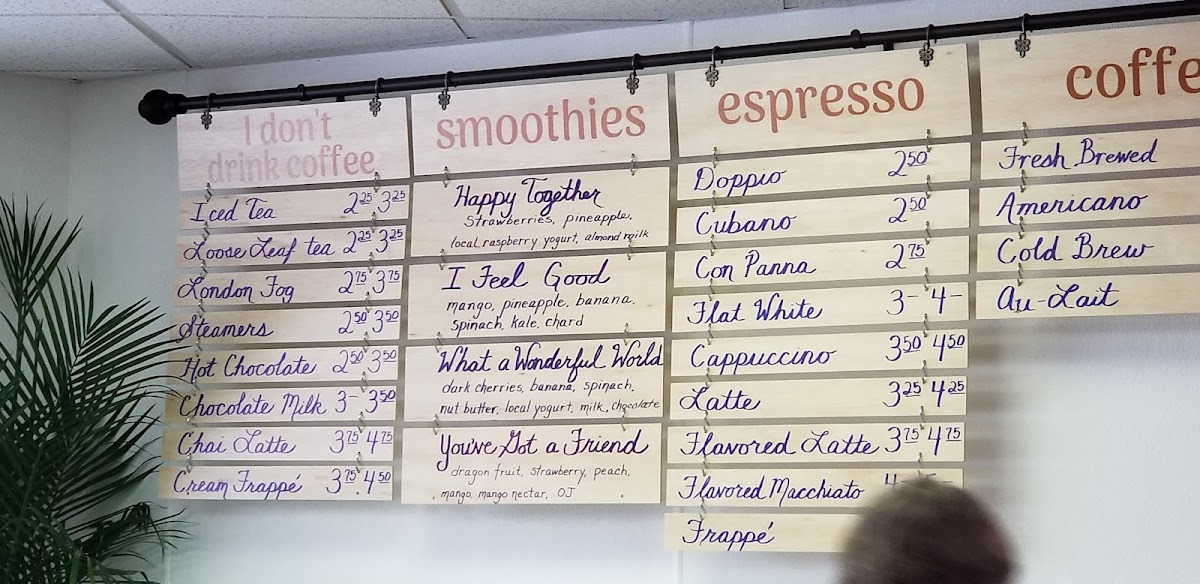 I don't
drink coffee
Iced Tea 2.25 3.25
Loose Leaf tea 2.25 3.25
London Fog 2.75 3.75
Steamers 2.50 3.50
Hot Chocolate 2.50 3.50
Chocolate Milk 3- 3.50
Chai Latte 3.75 4.75
Cream Frappé 3.75 4.50
smoothies
Happy Together
Strawberries, pineapple,
local raspberry yogurt, almond milk
I Feel Good
mango, pineapple, banana,
spinach, kale, chard
What a Wonderful World
dark cherries, banana, spinach,
nut butter, local yogurt, milk, chocolate
You've Got a Friend
dragon fruit, strawberry, peach,
mango, mango nectar, OJ
espresso
Doppio 2.50
Cubano 2.50
Con Panna 2.75
Flat White 3- 4-
Cappuccino 3.50 4.50
Latte 3.25 4.25
Flavored Latte 3.75 4.75
Flavored Macchiato
Frappé
coffe
Fresh Brewed
Americano
Cold Brew
Au-Lait